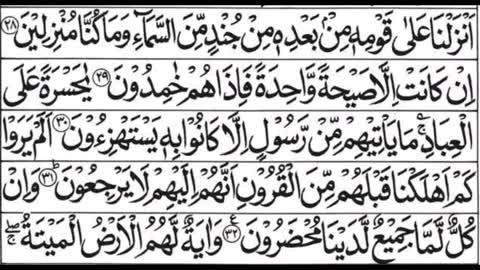 اَنْزَلْنَا عَلٰى قَوْمِهٖ مِنْۢ بَعْدِهٖ مِنْ جُنْدٍ مِّنَ السَّمَآءِ وَمَا كُنَّا مُنْزِلِيْنَ ۲۸
اِنْ كَانَتْ اِلَّا صَيْحَةً وَّاحِدَةً فَاِذَا هُمْ خٰمِدُوْنَ ۲۹ يٰحَسْرَةً عَلَى
الْعِبَادِ ۚ مَا يَاْتِيْهِمْ مِّنْ رَّسُوْلٍ اِلَّا كَانُوْا بِهٖ يَسْتَهْزِءُوْنَ ۳۰ اَلَمْ يَرَوْا
كَمْ اَهْلَكْنَا قَبْلَهُمْ مِّنَ الْقُرُوْنِ اَنَّهُمْ اِلَيْهِمْ لَا يَرْجِعُوْنَ ۳۱ ؕ وَاِنْ
كُلٌّ لَّمَّا جَمِيْعٌ لَّدَيْنَا مُحْضَرُوْنَ ۳۲ ع وَاٰيَةٌ لَّهُمُ الْاَرْضُ الْمَيْتَةُ ۖۚ